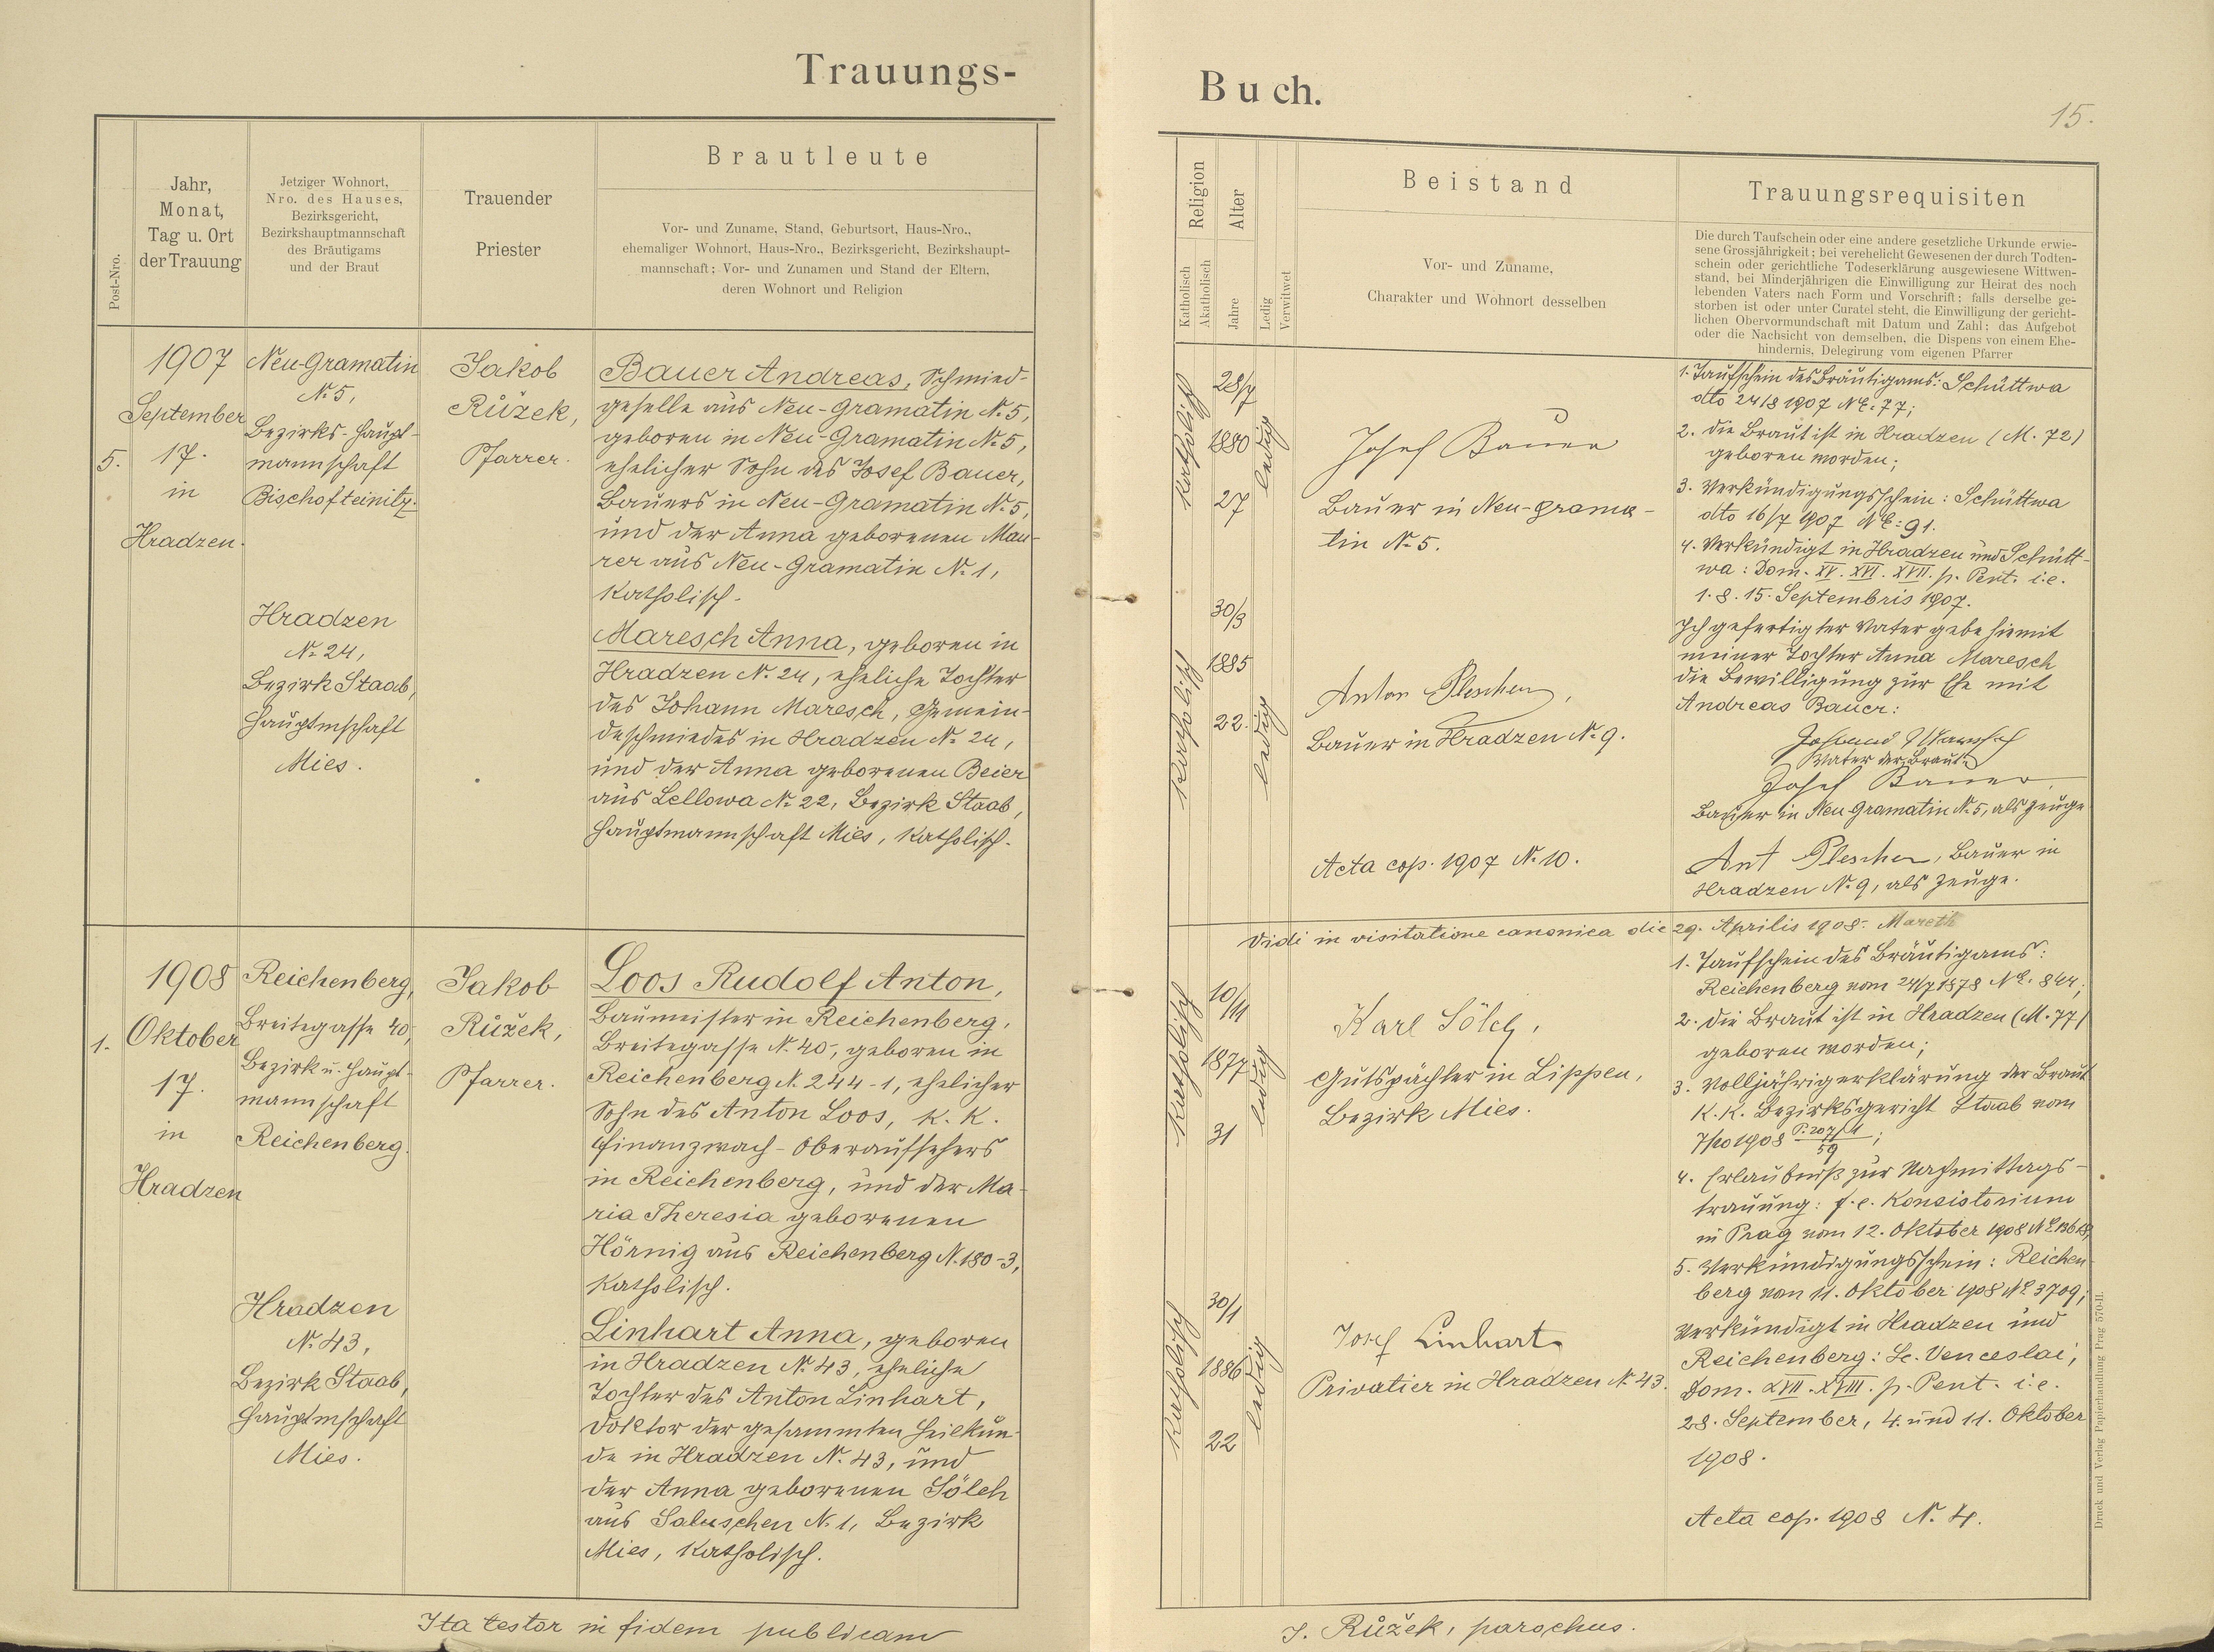 Trauungs-
Post-Nro.
Jahr,
Monat,
Tag u. Ort
der Trauung
Jetziger Wohnort,
Nro. des Hauses,
Bezirksgericht,
Bezirkshauptmannschaft
des Bräutigams
und der Braut
Trauender
Priester
Brautleute
Vor- und Zuname, Stand, Geburtsort, Haus-Nro.,
ehemaliger Wohnort, Haus-Nro., Bezirksgericht, Bezirkshaupt-
mannschaft; Vor- und Zunamen und Stand der Eltern,
deren Wohnort und Religion
5.
1907
September
17.
in
Hradzen.
Neu-Gramatin
N. 5,
Bezirks-Haupt-
mannschaft
Bischofteinitz.
Hradzen
N. 24,
Bezirk Staab,
Hauptmschaft
Mies.
Jakob
Růžek,
Pfarrer.
Bauer Andreas, Schmied-
geselle aus Neu-Gramatin N. 5,
geboren in Neu-Gramatin N. 5,
ehelicher Sohn des Josef Bauer,
Bauers in Neu-Gramatin N. 5,
und der Anna geborenen Mau-
rer aus Neu-Gramatin N. 1,
katholisch.
Maresch Anna, geboren in
Hradzen N. 24, eheliche Tochter
des Johann Maresch, Gemein-
deschmiedes in Hradzen N. 24,
und der Anna geborenen Beier
aus Lellowa N. 22, Bezirk Staab,
Hauptmannschaft Mies, katholisch.
1.
1908
Oktober
17.
in
Hradzen
Reichenberg,
Breitegasse 40,
Bezirk u. Haupt-
mannschaft
Reichenberg.
Hradzen
N. 43,
Bezirk Staab,
Hauptmschaft
Mies.
Jakob
Růžek,
Pfarrer.
Loos Rudolf Anton,
Baumeister in Reichenberg,
Breitegasse N. 40, geboren in
Reichenberg N. 244-1, ehelicher
Sohn des Anton Loos, k. k.
Finanzwach-Oberaufsehers
in Reichenberg, und der Ma-
ria Theresia geborenen
Hörnig aus Reichenberg N. 180-3,
katholisch.
Linhart Anna, geboren
in Hradzen N. 43, eheliche
Tochter des Anton Linhart,
Doktor der gesammten Heilkun-
de in Hradzen N. 43, und
der Anna geborenen Sölch
aus Saluschen N. 1, Bezirk
Mies, katholisch.
Ita testor in fidem publicam
Buch.
15.
Religion
Katholisch
Akatholisch
Alter
Jahre
Ledig
Verwitwet
Beistand
Vor- und Zuname,
Charakter und Wohnort desselben
Trauungsrequisiten
Die durch Taufschein oder eine andere gesetzliche Urkunde erwie-
sene Grossjährigkeit; bei verehelicht Gewesenen der durch Todten-
schein oder gerichtliche Todeserklärung ausgewiesene Wittwen-
stand, bei Minderjährigen die Einwilligung zur Heirat des noch
lebenden Vaters nach Form und Vorschrift; falls derselbe ge-
storben ist oder unter Curatel steht, die Einwilligung der gericht-
lichen Obervormundschaft mit Datum und Zahl; das Aufgebot
oder die Nachsicht von demselben, die Dispens von einem Ehe-
hindernis, Delegirung vom eigenen Pfarrer
katholisch
28/7
1880
27
ledig
Josef Bauer
Bauer in Neu-Grama-
tin N. 5.
katholisch
30/3
1885
22.
ledig
Anton Plescher,
Bauer in Hradzen N. 9.
Acta cop. 1907 N. 10.
1. Taufschein des Bräutigams: Schüttwa
dto 24/8 1907 NE. 77;
2. die Braut ist in Hradzen (M. 72)
geboren worden;
3. Verkündigungsschein: Schüttwa
dto 16/7 1907 NE: 91.
4. Verkündigt in Hradzen und Schütt-
wa: Dom. XV. XVI. XVII. p. Pent. i.e.
1. 8. 15. Septembris 1907.
Ich gefertigter Vater gebe hiemit
meiner Tochter Anna Maresch
die Bewilligung zur Ehe mit
Andreas Bauer:
Johann Maresch
Vater der Braut
Josef Bauer
Bauer in Neu Gramatin N. 5, als Zeuge
Ant Plescher, Bauer in
Hradzen N. 9, als Zeuge.
Vidi in visitatione canonica die 29. Aprilis 1908. Mareth
katholisch
10/11
1877
31
ledig
Karl Sölch,
Gutspächter in Lippen,
Bezirk Mies.
katholisch
30/1
1886
22
ledig
Josef Linhart
Privatier in Hradzen N. 43.
1. Taufschein des Bräutigams:
Reichenberg vom 24/7 1878 NE. 844;
2. die Braut ist in Hradzen (M. 77)
geboren worden;
3. Volljährigerklärung der Braut
k. k. Bezirksgericht Staab vom
7/10 1908 P. 207/1
59 ;
4. Erlaubniß zur Nachmittags-
trauung: f. e. Konsistorium
in Prag vom 12. Oktober 1908
5. Verkündigungsschein: Reichen-
berg vom 11. Oktober 1908 NE 3709;
Verkündigt in Hradzen und
Reichenberg: Sc. Venceslai,
Dom. XVII. XVIII. p. Pent. i.e.
28. September, 4. und 11. Oktober
1908.
Acta cop. 1908 N. 4.
J. Růžek, parochus.
Druck und Verlag Papierhandlung Prag 570-II.